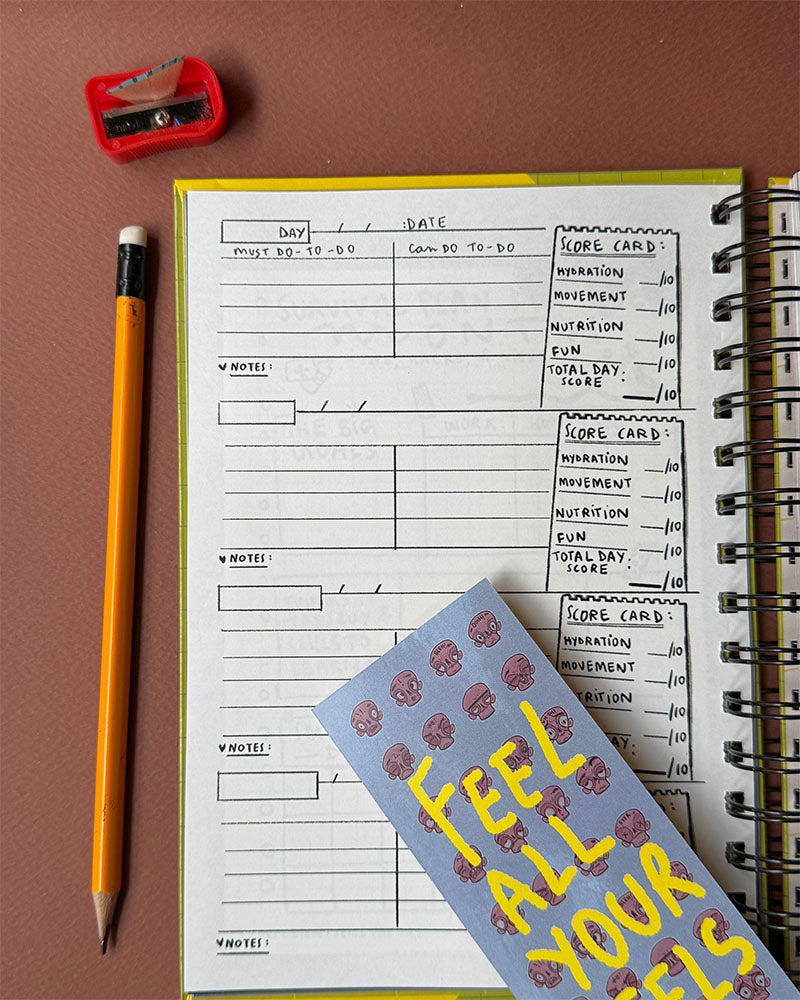 DAY / / :DATE
MUST DO-TO-DO
Can DO TO-DO
SCORE CARD:
HYDRATION __/10
MOVEMENT __/10
NUTRITION __/10
FUN __/10
TOTAL DAY SCORE : __/10
♥ NOTES:
/ /
SCORE CARD:
HYDRATION __/10
MOVEMENT __/10
NUTRITION __/10
FUN __/10
TOTAL DAY SCORE : __/10
♥ NOTES:
/ /
SCORE CARD:
HYDRATION __/10
MOVEMENT __/10
TRITION /10
/10
AY: __/10
♥ NOTES:
/
♥ NOTES:
FEEL
ALL
YOUR
ELS